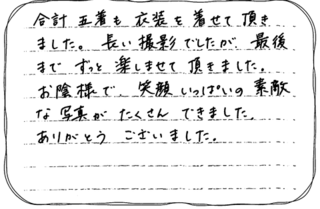 合計 五着も 衣装を着せて頂き
ました。長い撮影でしたが、最後
まで ずっと 楽しませて 頂きました。
お陰様で、笑顔いっぱいの 素敵
な 写真が たくさん できました。
ありがとう ございました。